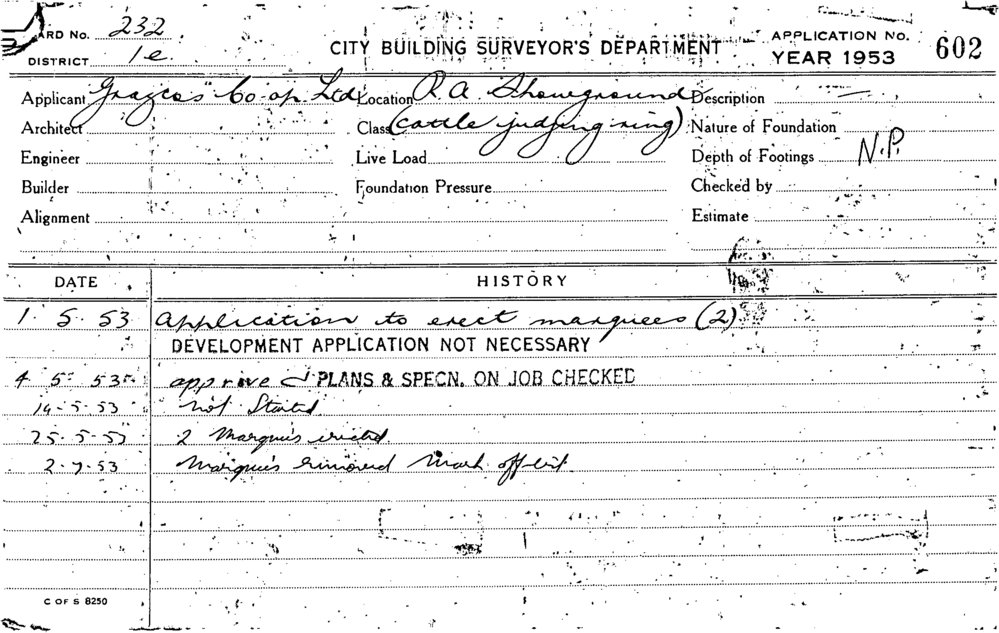 ARD No. 232
DISTRICT 1e.
CITY BUILDING SURVEYOR'S DEPARTMENT
APPLICATION No. 602
YEAR 1953
Applicant "Grazcos" Co-op Ltd Location R.A. Showground Description
Architect Class (cattle judging ring) Nature of Foundation
Engineer Live Load Depth of Footings N.P.
Builder Foundation Pressure Checked by
Alignment Estimate
DATE HISTORY
1. 5. 53 Application to erect marquees (2)
DEVELOPMENT APPLICATION NOT NECESSARY
4 5 53 approved PLANS & SPECN. ON JOB CHECKED
14-5-53 Not Started
25-5-53 2 Marquis erected
2.7.53 Marquis removed Mark off
C OF S 8250